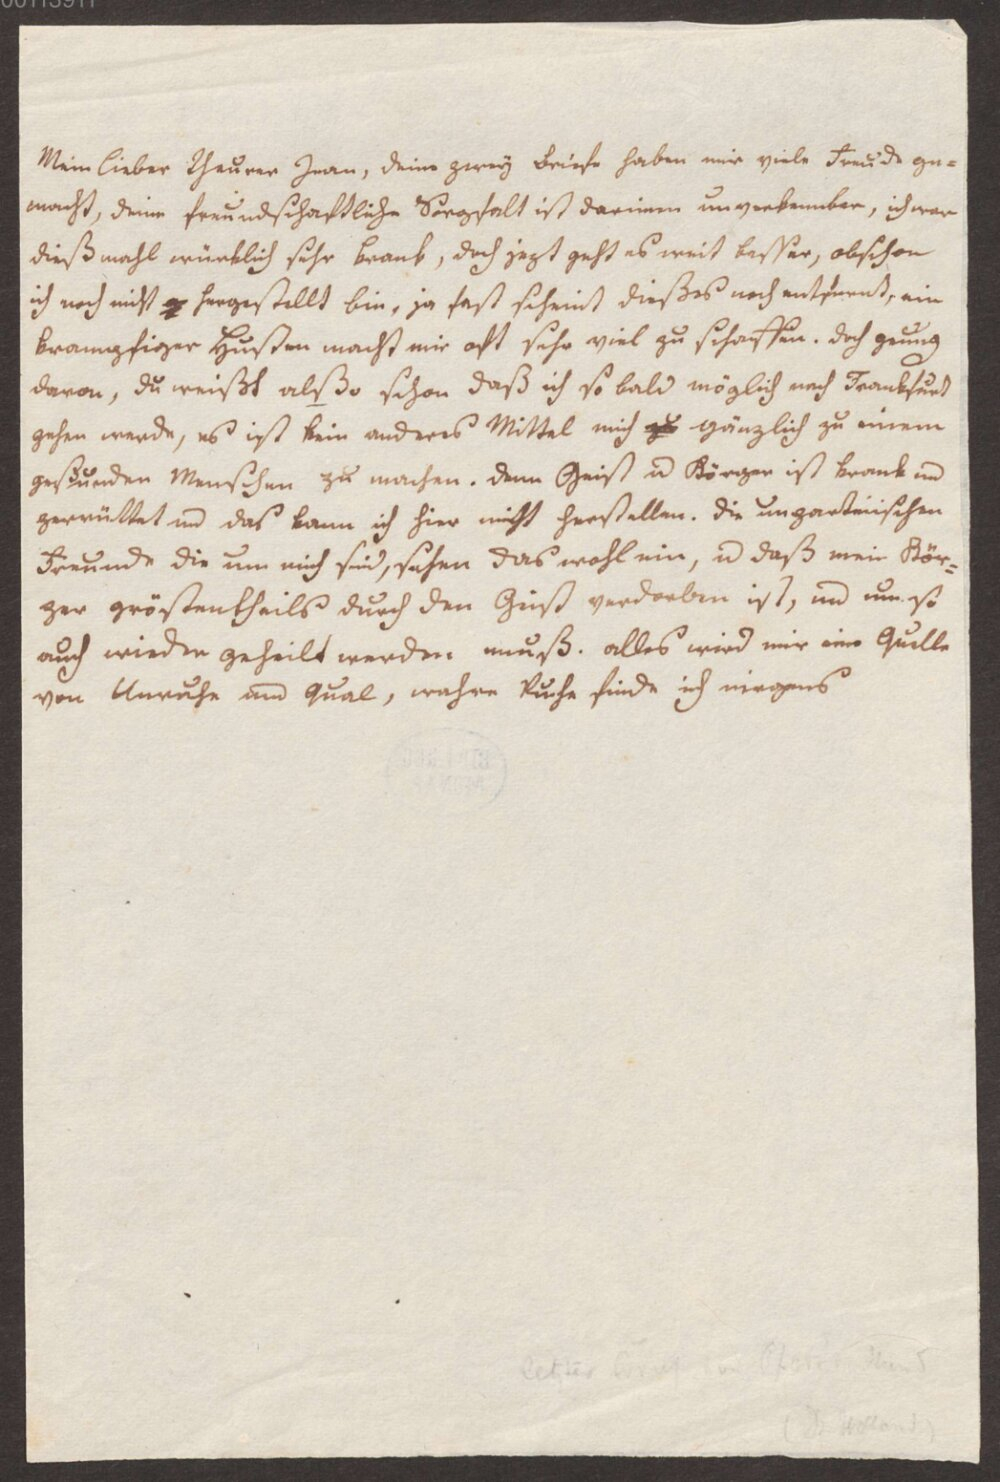 00113911
Mein lieber Theurer Jean, deine zwey Briefe haben mir viele Freude ge=
macht, deine freundschaftliche Sorgfalt ist darinnen unverkennbar, ich war
dießmahl würklich sehr krank, doch jezt geht es weit besser, obschon
ich noch nicht hergestellt bin, ja fast scheint dießes noch entfernt, ein
krampfiger Hußten macht mir oft sehr viel zu schaffen. doch genug
davon, du weißt alßo schon daß ich so bald möglich nach Frankfurt
gehen werde, es ist kein anderes Mittel mich gänzlich zu einem
gesunden Menschen zu machen. denn Geist u Körper ist krank und
zerrüttet und das kann ich hier nicht herstellen. die unparteiischen
Freunde die um mich sind, sehen das wohl ein, u daß mein Kör=
per gröstentheils durch den Geist verdorben ist, und um so
auch wieder geheilt werden muß. alles wird mir eine Quelle
von Unruhe und Qual, wahre Ruhe finde ich nirgens
Letzter Brief von